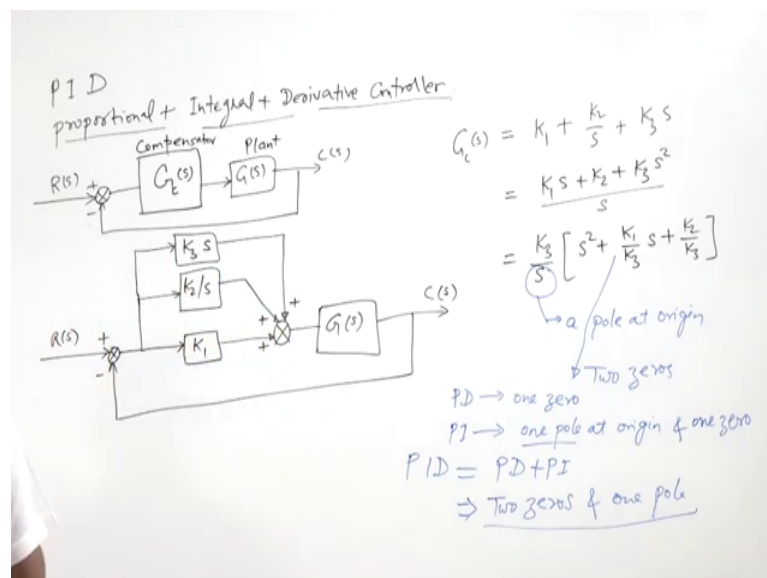 PID
proportional + Integral + Derivative Controller
Compensator Plant
R(s) + - Gc(s) G(s) C(s)
K3 s
K2/s
R(s) + - K1 + + + G(s) C(s)
Gc(s) = K1 + K2/s + K3 s
= K1 s + K2 + K3 s² / s
= K3/s [ s² + K1/K3 s + K2/K3 ]
a pole at origin
Two zeros
PD → one zero
PI → one pole at origin & one zero
PID = PD + PI
⇒ Two zeros & one pole